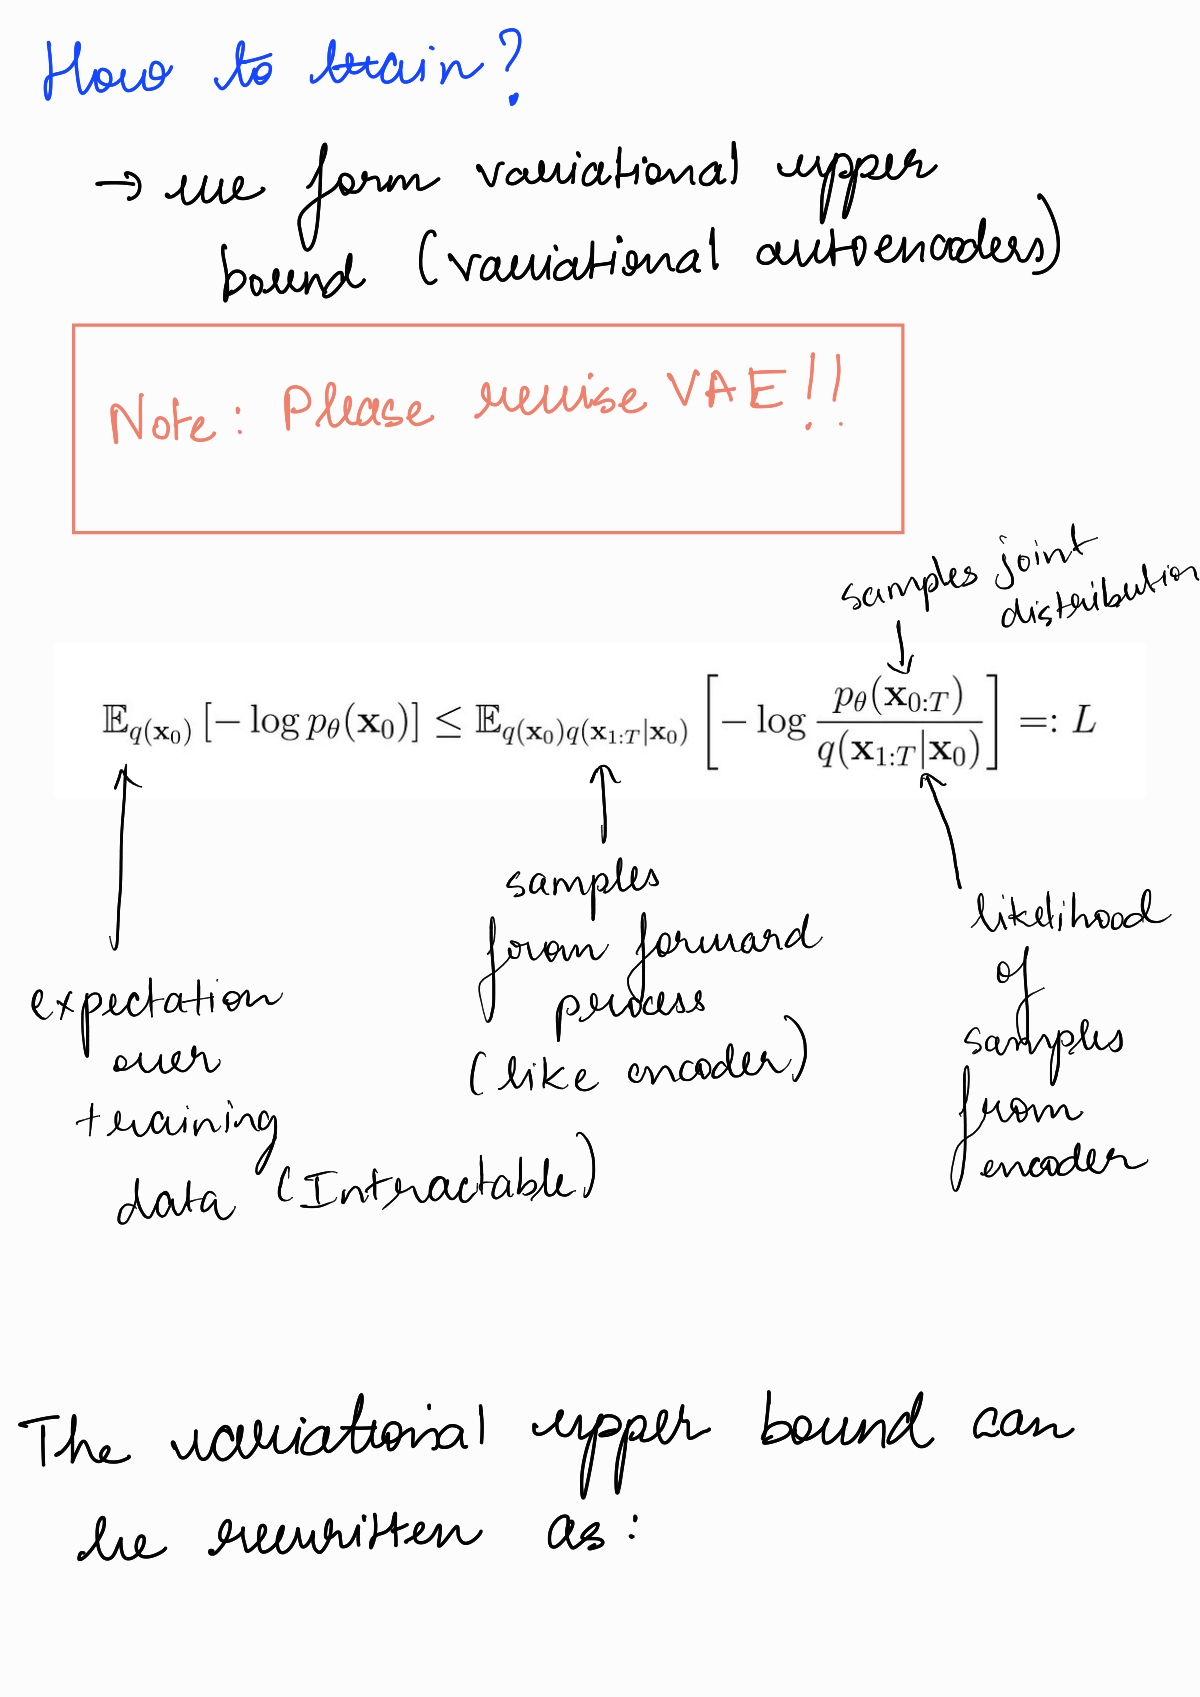 How to train?
→ we form variational upper
bound (variational autoencoders)
Note: Please revise VAE!!
samples joint
distribution
$\mathbb{E}_{q(\mathbf{x}_0)}[-\log p_\theta(\mathbf{x}_0)] \leq \mathbb{E}_{q(\mathbf{x}_0)q(\mathbf{x}_{1:T}|\mathbf{x}_0)}\left[-\log \frac{p_\theta(\mathbf{x}_{0:T})}{q(\mathbf{x}_{1:T}|\mathbf{x}_0)}\right] =: L$
expectation
over
training
data (Intractable)
samples
from forward
process
(like encoder)
likelihood
of
samples
from
encoder
The variational upper bound can
be rewritten as: